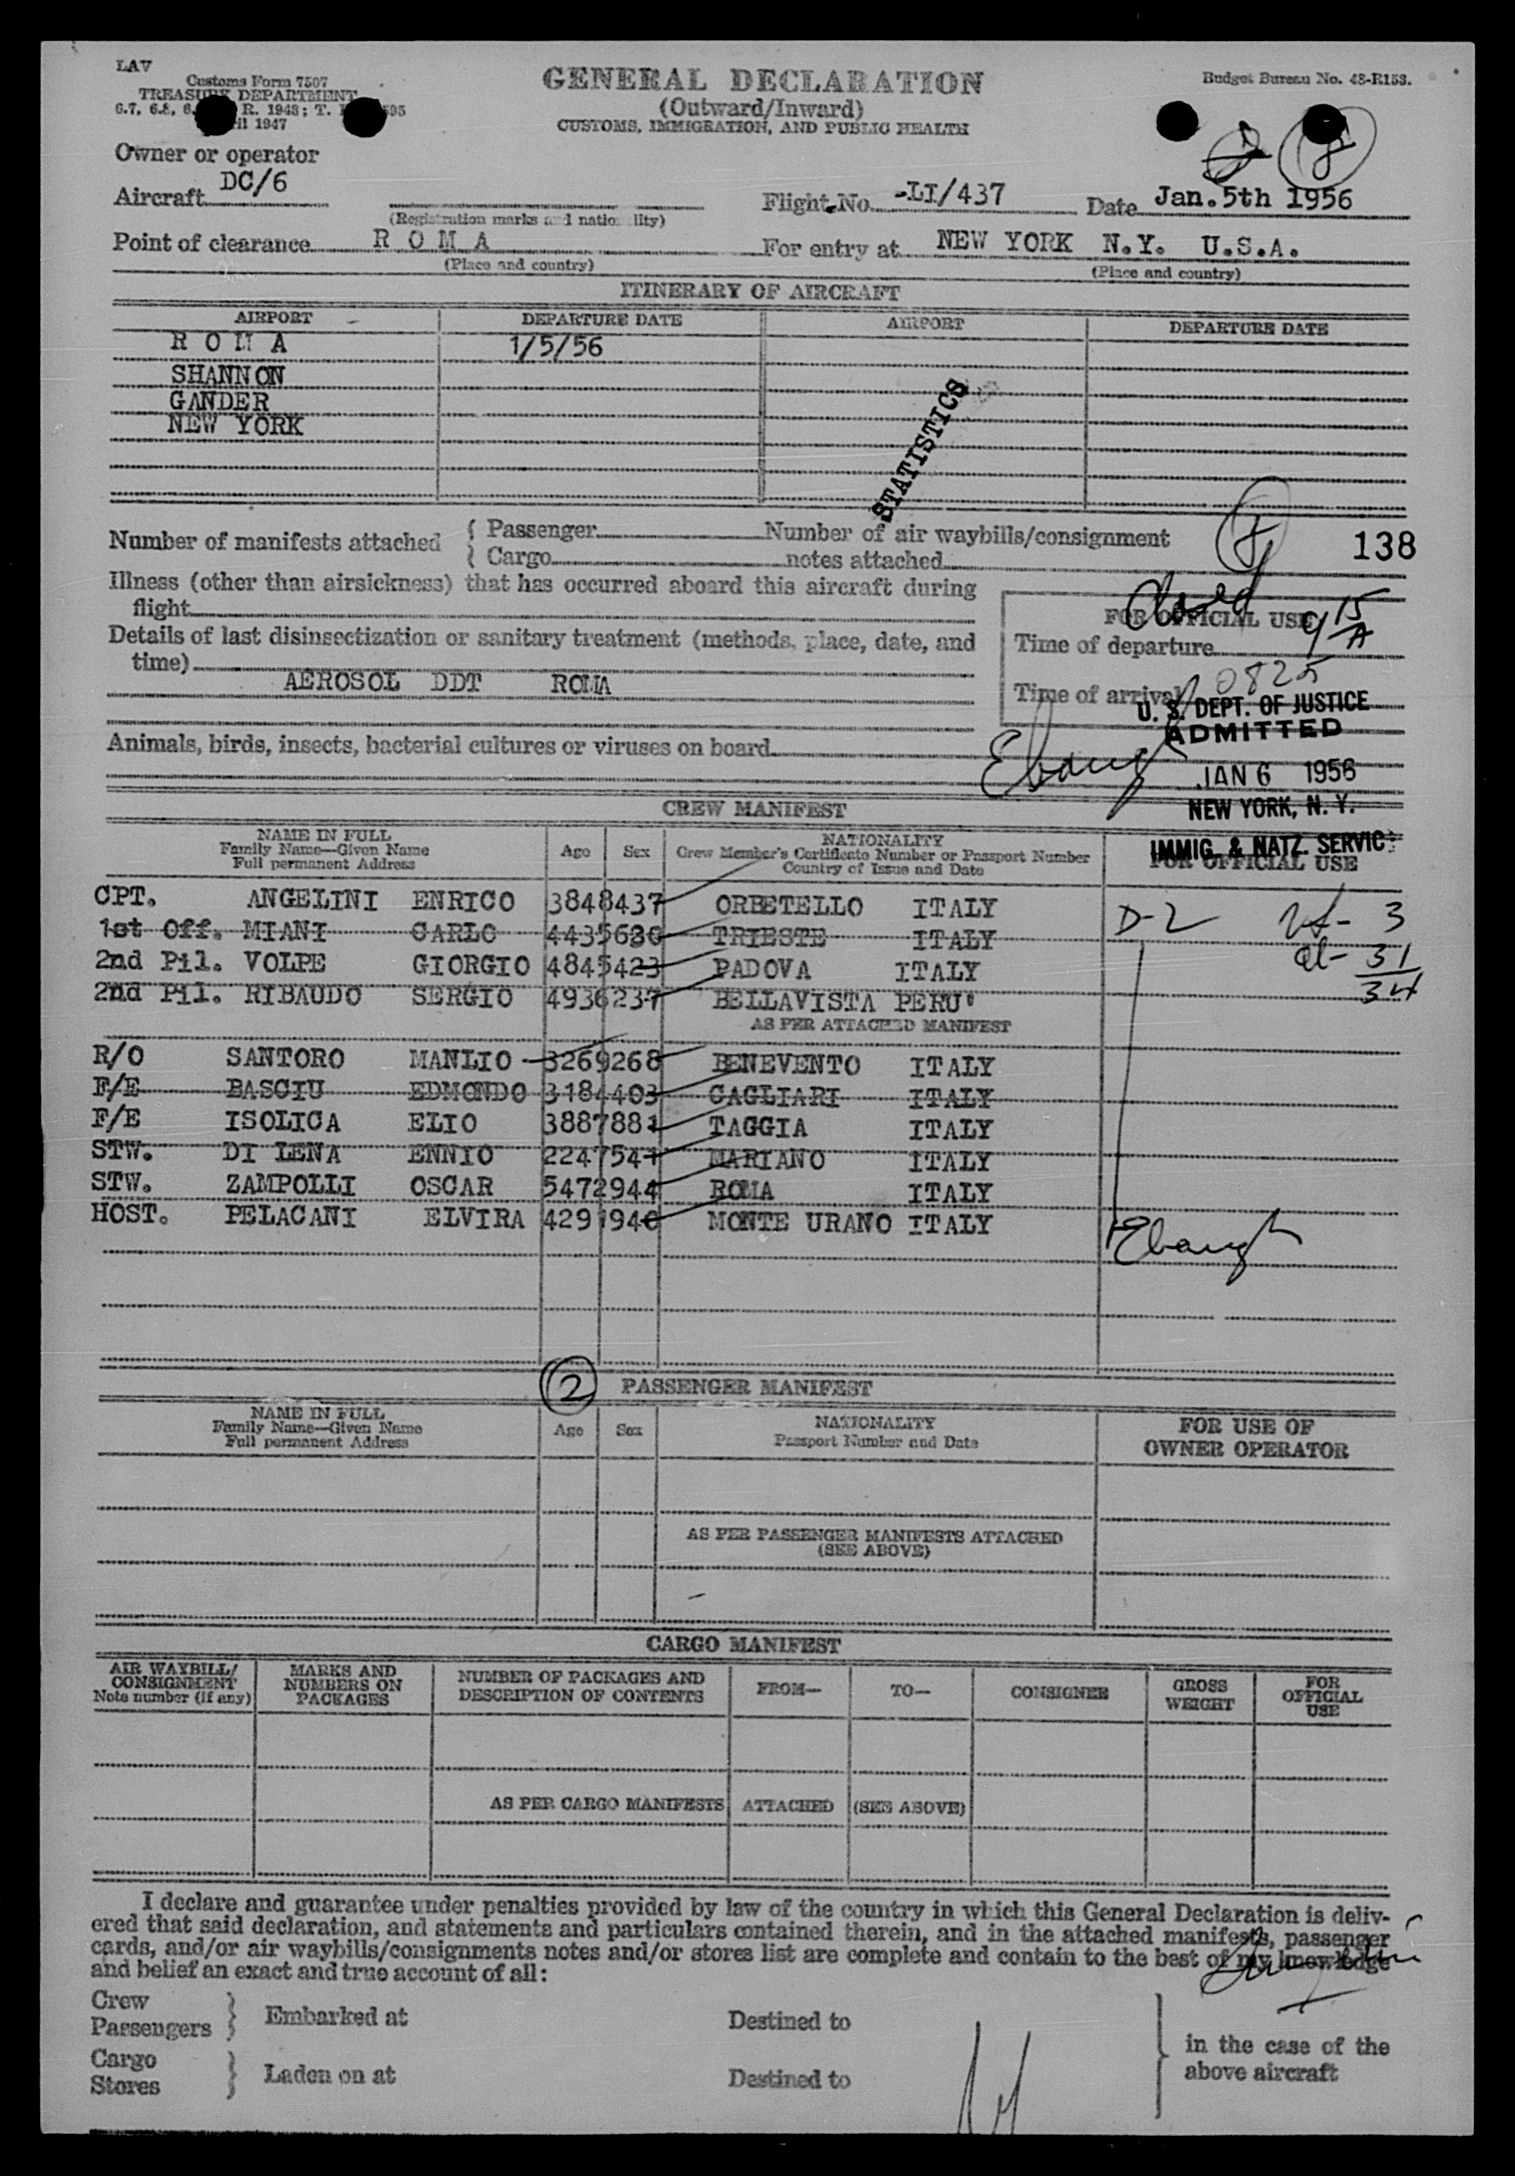 LAV
Customs Form 7507
TREASURY DEPARTMENT
6.7, 6.8, R. 1948; T.
1947
GENERAL DECLARATION
(Outward/Inward)
CUSTOMS, IMMIGRATION, AND PUBLIC HEALTH
Budget Bureau No. 48-R153.
Owner or operator
Aircraft DC/6
(Registration marks and nationality)
Flight No. -LI/437
Date Jan.5th 1956
Point of clearance R O M A
(Place and country)
For entry at NEW YORK N.Y. U.S.A.
(Place and country)
ITINERARY OF AIRCRAFT
AIRPORT DEPARTURE DATE AIRPORT DEPARTURE DATE
R O M A 1/5/56
SHANNON
GANDER
NEW YORK
STATISTICS
Number of manifests attached { Passenger Number of air waybills/consignment
{ Cargo notes attached
138
Illness (other than airsickness) that has occurred aboard this aircraft during
flight
Details of last disinsectization or sanitary treatment (methods, place, date, and
time)
AEROSOL DDT ROMA
FOR OFFICIAL USE
Time of departure 9 15/A
Time of arrival 0825
U. S. DEPT. OF JUSTICE
ADMITTED
JAN 6 1956
NEW YORK, N. Y.
IMMIG. & NATZ. SERVICE
Animals, birds, insects, bacterial cultures or viruses on board
Ebaugh
CREW MANIFEST
NAME IN FULL
Family Name—Given Name
Full permanent Address
Age Sex
NATIONALITY
Crew Member's Certificate Number or Passport Number
Country of Issue and Date
FOR OFFICIAL USE
CPT. ANGELINI ENRICO 3848437 ORBETELLO ITALY D-2 3
1st Off. MIANI CARLO 4435630 TRIESTE ITALY
2nd Pil. VOLPE GIORGIO 4845423 PADOVA ITALY 31
2nd Pil. RIBAUDO SERGIO 4936237 BELLAVISTA PERU' 34
AS PER ATTACHED MANIFEST
R/O SANTORO MANLIO 3269268 BENEVENTO ITALY
F/E BASCIU EDMONDO 3184403 CAGLIARI ITALY
F/E ISOLICA ELIO 3887881 TAGGIA ITALY
STW. DI LENA ENNIO 2247541 MARIANO ITALY
STW. ZAMPOLLI OSCAR 5472944 ROMA ITALY
HOST. PELACANI ELVIRA 4291940 MONTE URANO ITALY
Ebaugh
2
PASSENGER MANIFEST
NAME IN FULL
Family Name—Given Name
Full permanent Address
Age Sex
NATIONALITY
Passport Number and Date
FOR USE OF
OWNER OPERATOR
AS PER PASSENGER MANIFESTS ATTACHED
(SEE ABOVE)
CARGO MANIFEST
AIR WAYBILL/
CONSIGNMENT
Note number (if any)
MARKS AND
NUMBERS ON
PACKAGES
NUMBER OF PACKAGES AND
DESCRIPTION OF CONTENTS
FROM—
TO—
CONSIGNEE
GROSS
WEIGHT
FOR
OFFICIAL
USE
AS PER CARGO MANIFESTS ATTACHED (SEE ABOVE)
I declare and guarantee under penalties provided by law of the country in which this General Declaration is deliv-
ered that said declaration, and statements and particulars contained therein, and in the attached manifests, passenger
cards, and/or air waybills/consignments notes and/or stores list are complete and contain to the best of my knowledge
and belief an exact and true account of all:
Crew
Passengers } Embarked at Destined to
Cargo
Stores } Laden on at Destined to
in the case of the
above aircraft